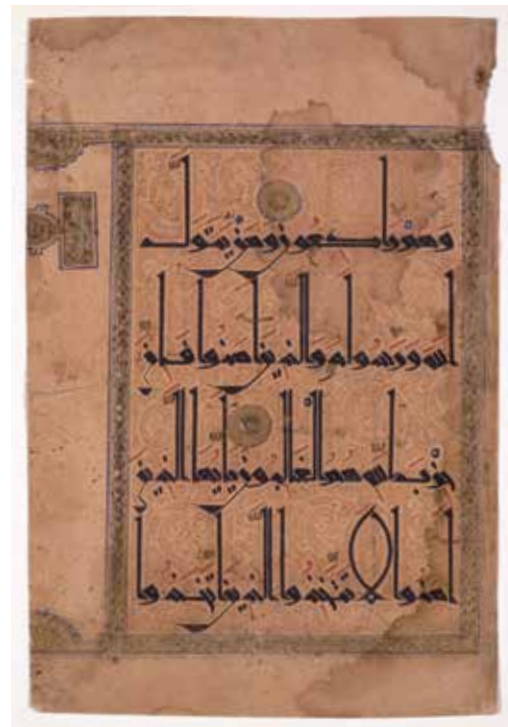 وهم راكعون ومن يتول
الله ورسوله والذين آمنوا فإن
حزب الله هم الغالبون يا أيها الذين
آمنوا لا تتخذوا الذين اتخذوا